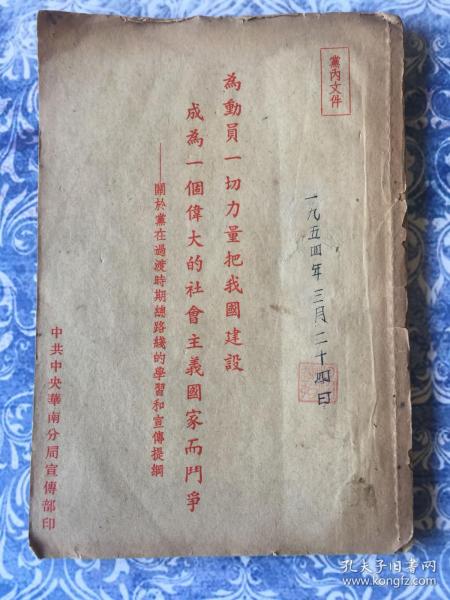 黨內文件
一九五四年三月二十四日
為動員一切力量把我國建設
成為一個偉大的社會主義國家而鬥爭
——關於黨在過渡時期總路綫的學習和宣傳提綱
中共中央華南分局宣傳部印
孔夫子旧书网
www.kongfz.com